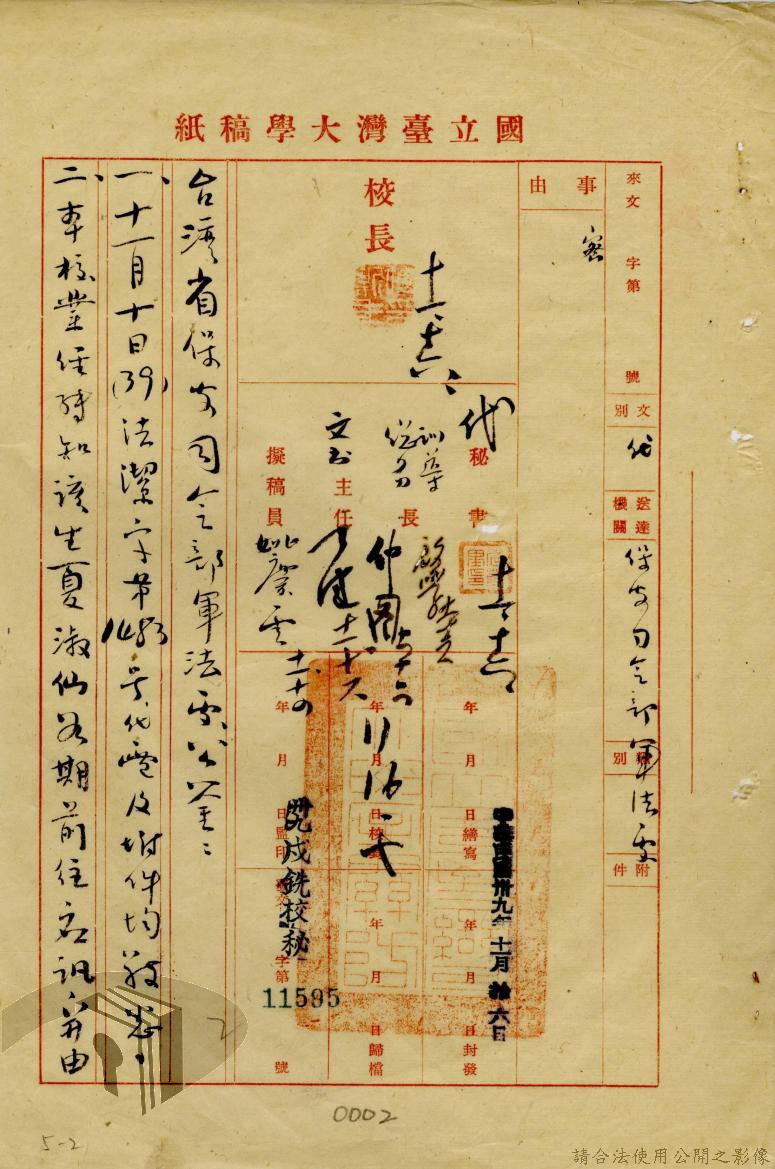 國立臺灣大學稿紙
來文 字第 號
文別
代
送達機關
保安司令部軍法處
附件
事由
密
校長
十一、十六、
代
秘書
十一、十六
訓導長
文書主任
擬稿員
姚縈雲 十一、十四
年 月 日繕寫
年 月 日封發
年 月 日校對
年 月 日歸檔
年 月 日監印
字第 號
中華民國卅九年十一月拾六日
卅九戌銑校秘
11595
台灣省保安司令部軍法處公鑒:
一、十一月十日(39)法潔字第1483號代電及附件均敬悉。
二、本校業經轉知該生夏淑仙如期前往應訊并由
2
0002
5-2
請合法使用公開之影像